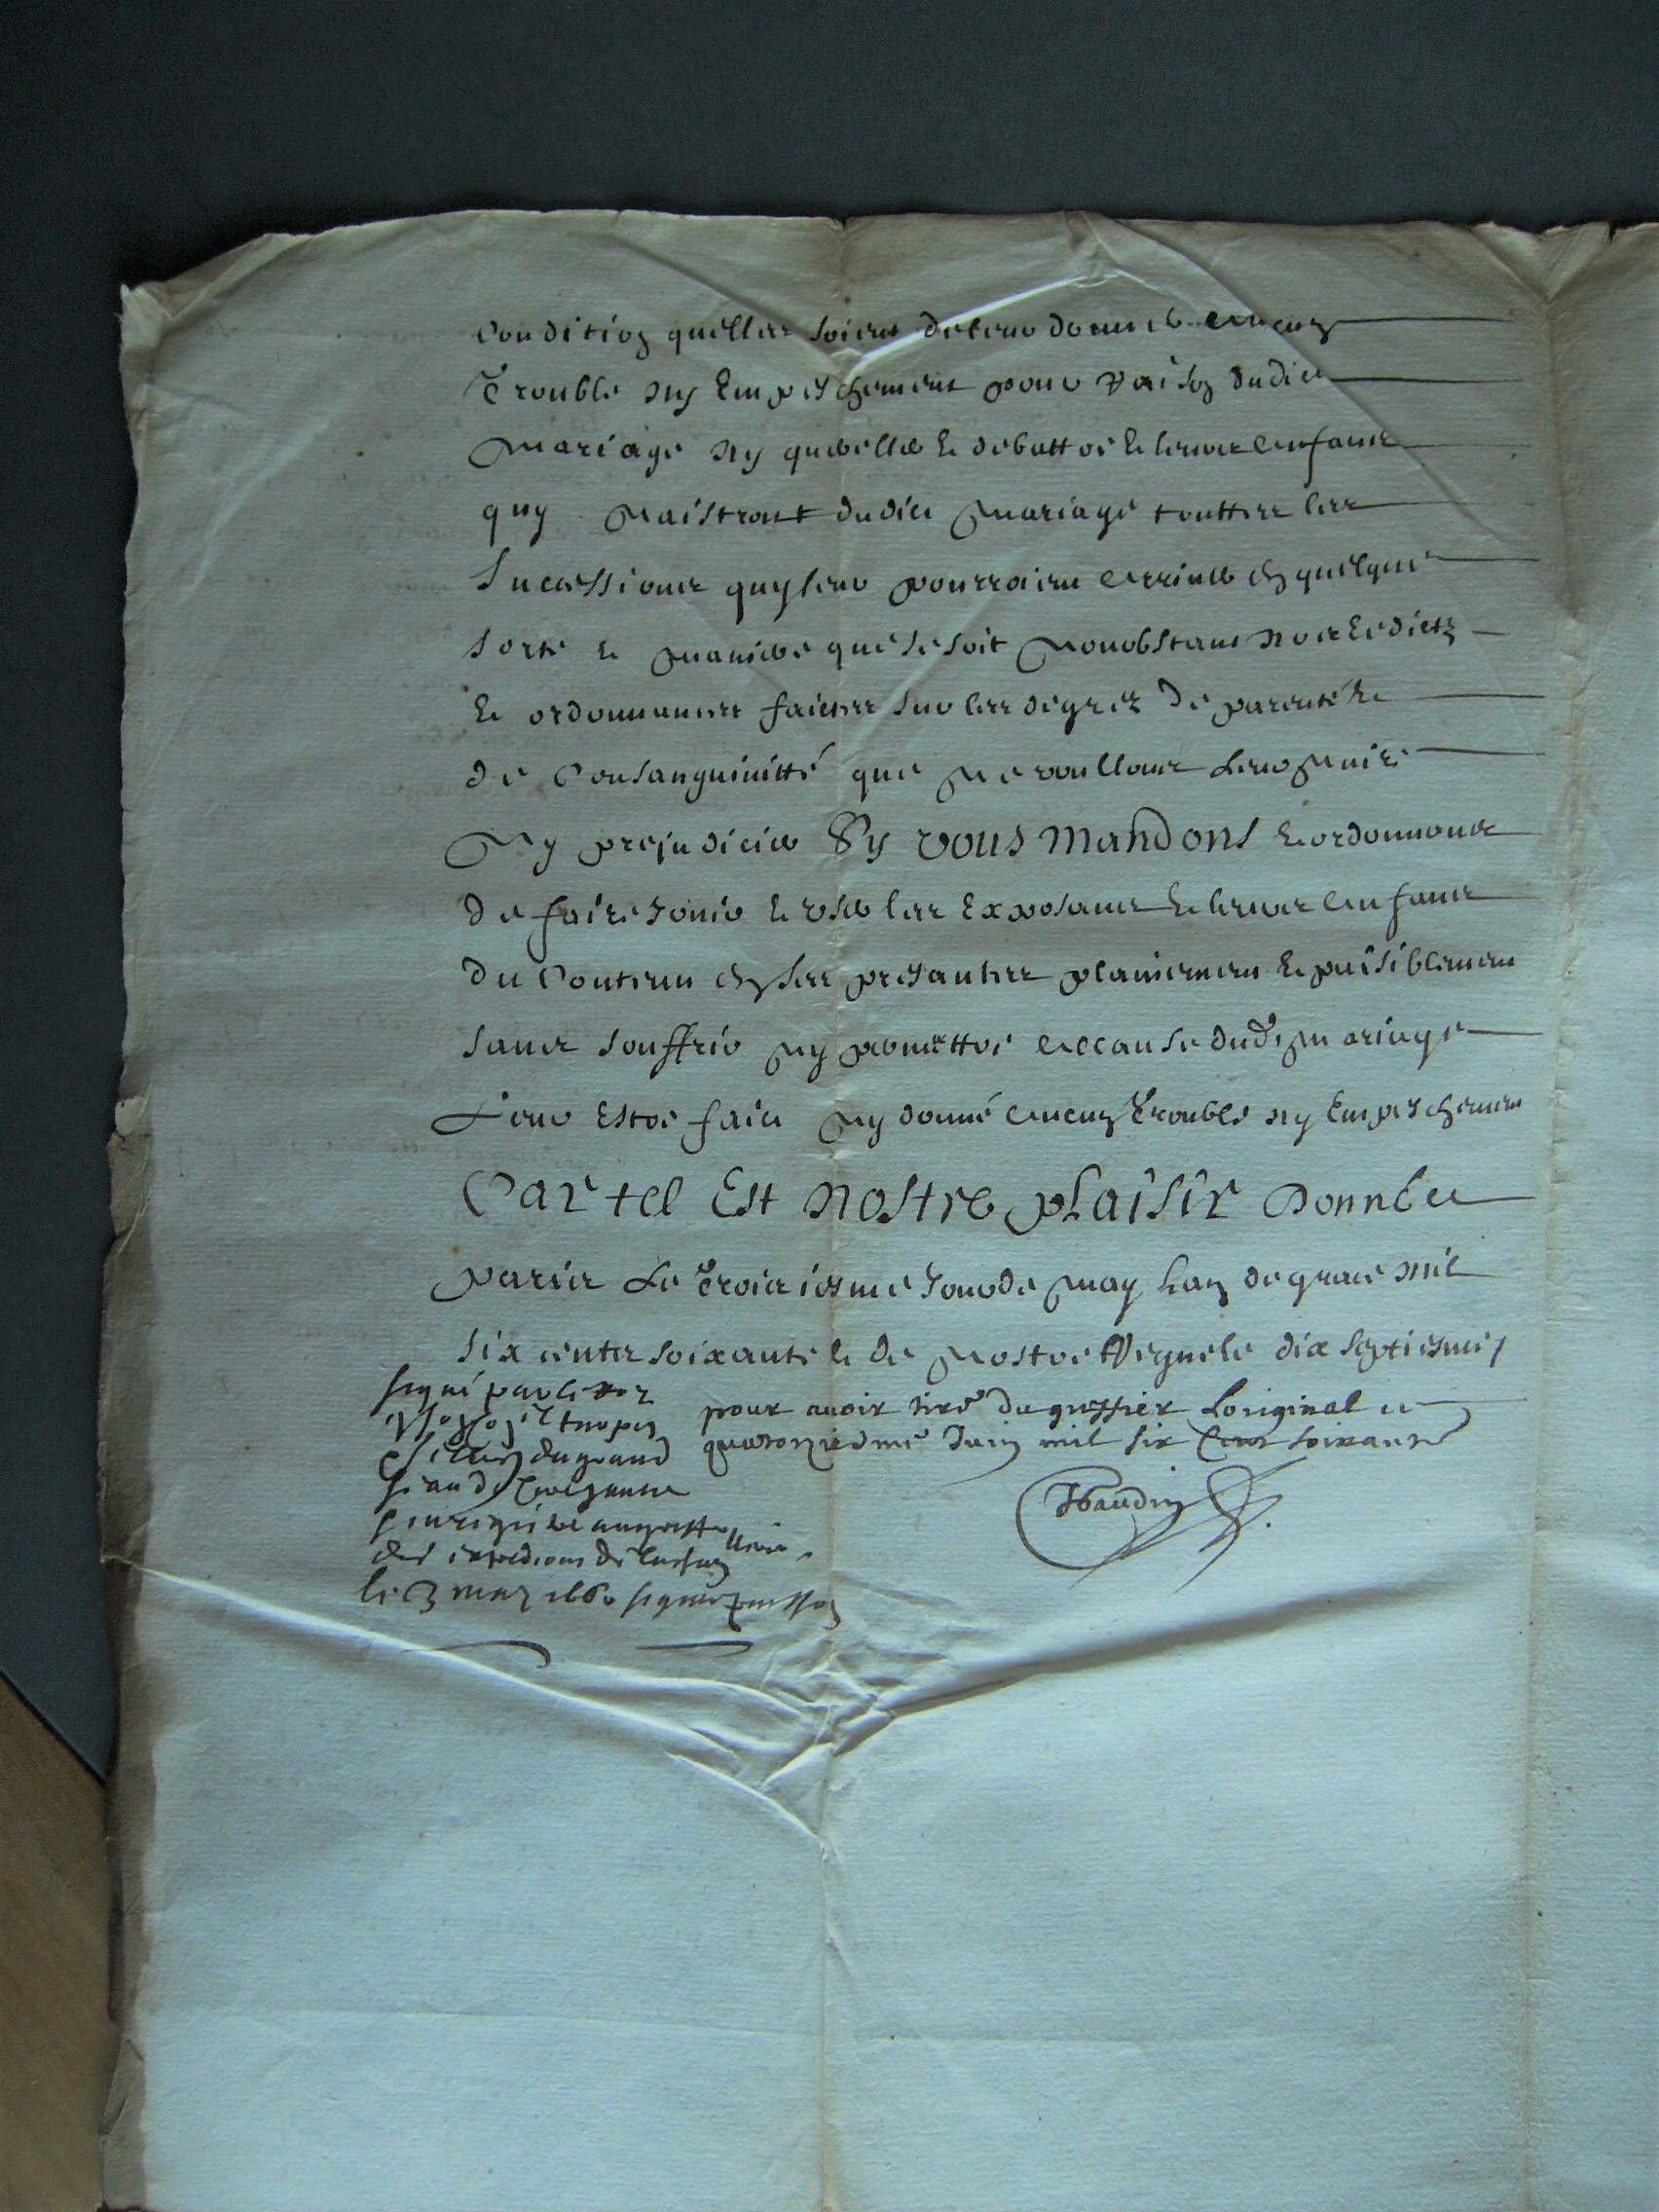 condition quelles soient de leur donner aucun
trouble ny empeschement pour raison dudict
mariage ny quereller & debattre & leurs enfans
quy naistront dudict mariage touttes les
successions quy leur pourroient arriver en quelque
sorte & maniere que se soit nonobstant nos edictz
& ordonnances faictes sur les degrez de parenté &
de consanguinitté que ne voullons leur nuire
ny prejudicier Sy vous mandons & ordonnons
de faire jouir & user les exposans & leurs enfans
du contenu en ses presantes plainement & paisiblement
sans souffrir ny permettre a cause dud mariage
leur estre faict ny donné aucun trouble ny empeschement
Car tel Est nostre plaisir Donné a
paris le troisiesme jour de may lan de grace mil
six cents soixante & de nostre Regne le dix septiesme
signé par le roy
pour avoir tiré du greffier loriginal ce
quatorziesme Juin mil six cens soixante
du grand
des expedions de
le 3 may 1660 signé